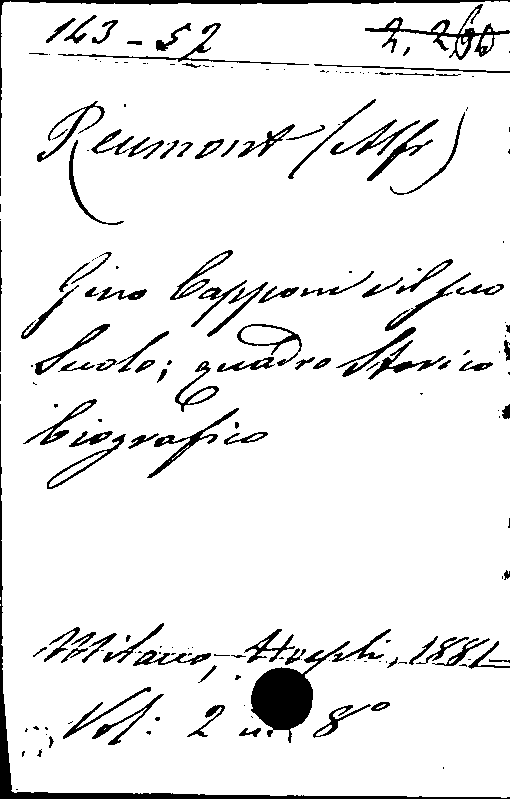 143-52 2. 2
Reumont (Alfr)
Gino Capponi e il suo
Secolo; quadro Storico
biografico
Milano, Hoepli, 1881-
Vol: 2 in 8°